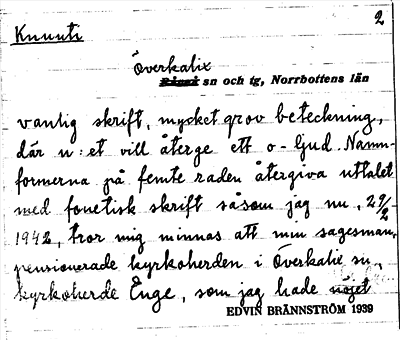 2
Knuuti
Överkalix
sn och tg, Norrbottens län
vanlig skrift, mycket grov beteckning,
där u:et vill återge ett o-ljud. Namn-
formerna på femte raden återgiva uttalet
med fonetisk skrift såsom jag nu, 29/2
1942, tror mig minnas att min sagesman,
pensionerade kyrkoherden i Överkalix sn,
kyrkoherde Enge, som jag hade nöjet
EDVIN BRÄNNSTRÖM 1939